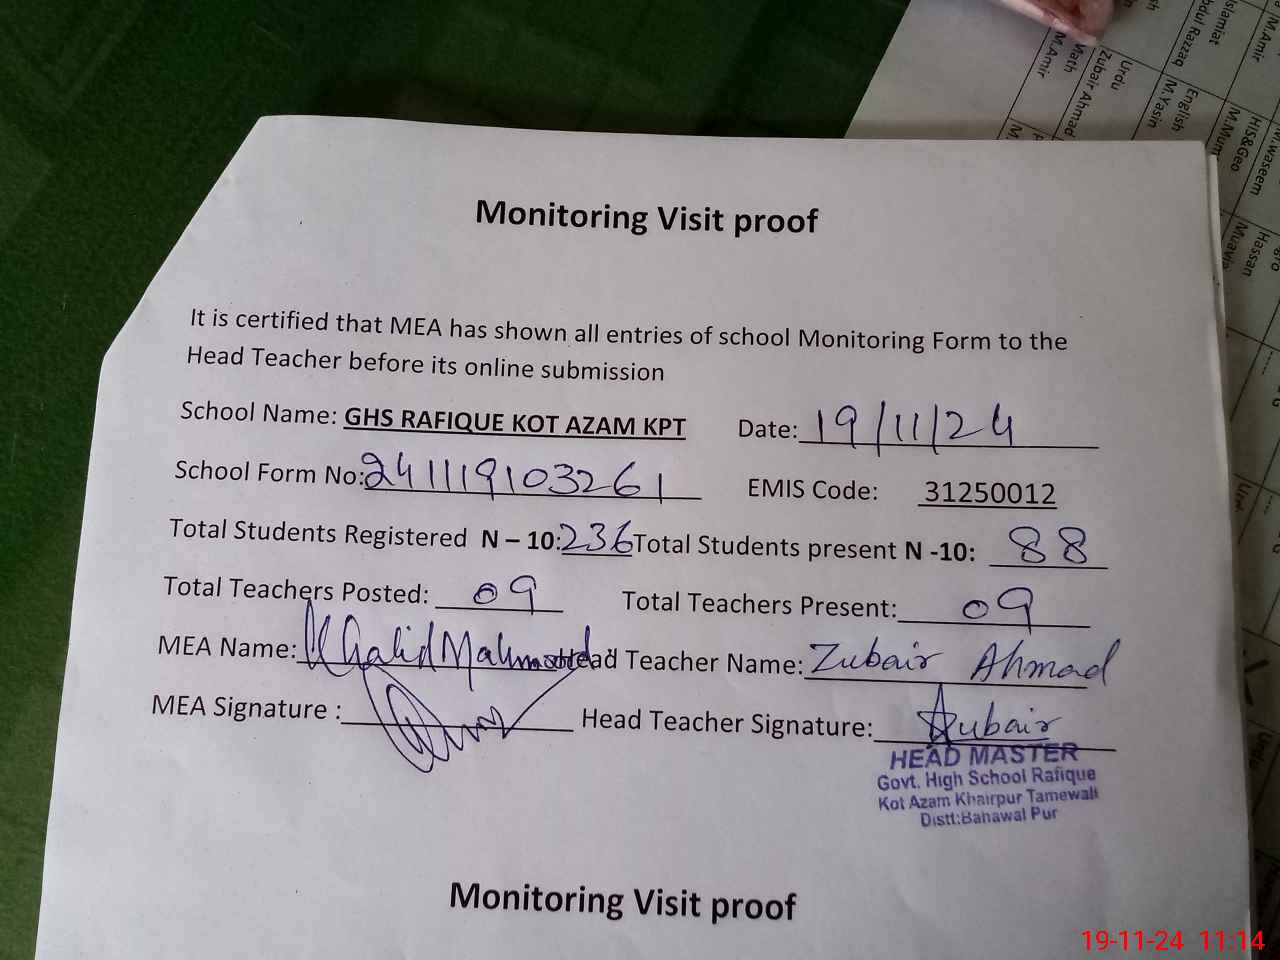 Monitoring Visit proof
It is certified that MEA has shown all entries of school Monitoring Form to the
Head Teacher before its online submission
School Name: GHS RAFIQUE KOT AZAM KPT Date: 19/11/24
School Form No: 241119103261 EMIS Code: 31250012
Total Students Registered N – 10: 236 Total Students present N -10: 88
Total Teachers Posted: 09 Total Teachers Present: 09
MEA Name: Khalid Mahmood Head Teacher Name: Zubair Ahmad
MEA Signature : Head Teacher Signature: Zubair
HEAD MASTER
Govt. High School Rafique
Kot Azam Khairpur Tamewali
Distt:Bahawal Pur
Monitoring Visit proof
19-11-24 11:14
Math
M.Amir
Urdu
Zubair Ahmad
English
M.Yasin
HIS&Geo
Hassan
M.Amir